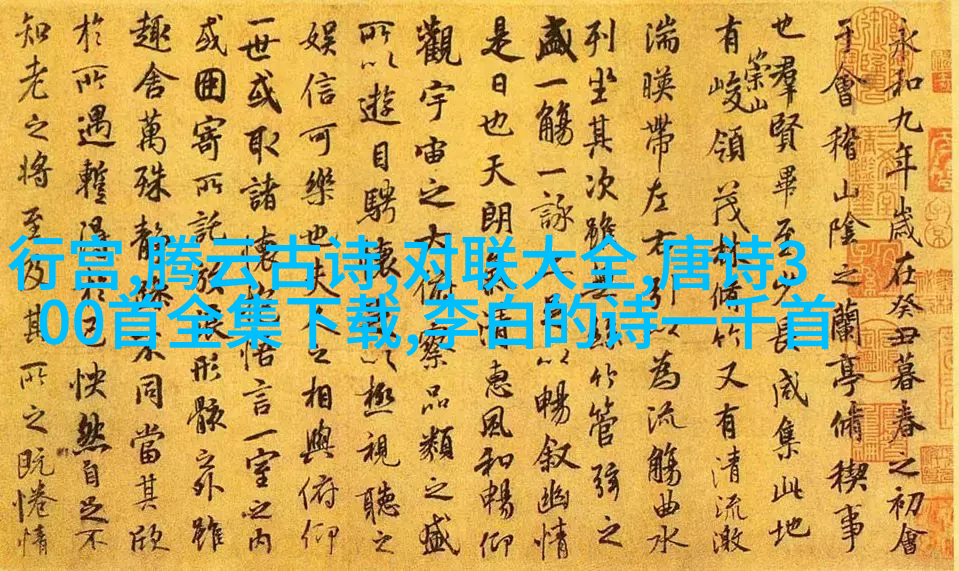 行宫,腾云古诗,对联大全,唐诗3
00首全集下载,李白的诗一千首
永和九年歲在癸丑暮春之初會
于會稽山陰之蘭亭脩禊事
也羣賢畢至少長咸集此地
有崇山峻領茂林脩竹又有清流激
湍暎帶左右引以為流觴曲水
列坐其次雖無絲竹管弦之
盛一觴一詠亦足以暢敘幽情
是日也天朗氣清惠風和暢仰
觀宇宙之大俯察品類之盛
所以遊目騁懷足以極視聽之
娛信可樂也夫人之相與俯仰
一世或取諸懷抱悟言一室之內
或因寄所託放浪形骸之外雖
趣舍萬殊靜躁不同當其欣
於所遇暫得於己怏然自足不
知老之將至及其所之既惓情